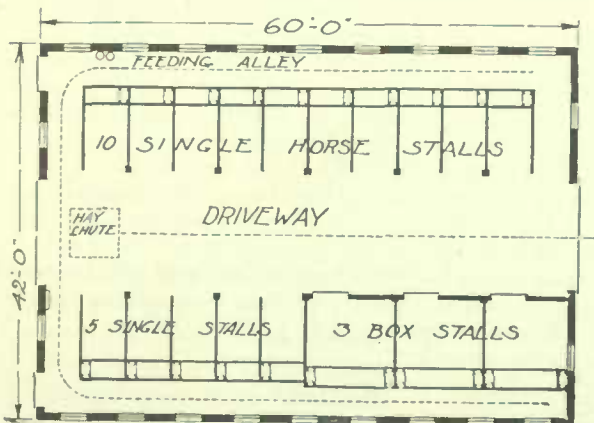 60'-0"
FEEDING ALLEY
10 SINGLE HORSE STALLS
HAY
CHUTE
DRIVEWAY
42'-0"
5 SINGLE STALLS
3 BOX STALLS